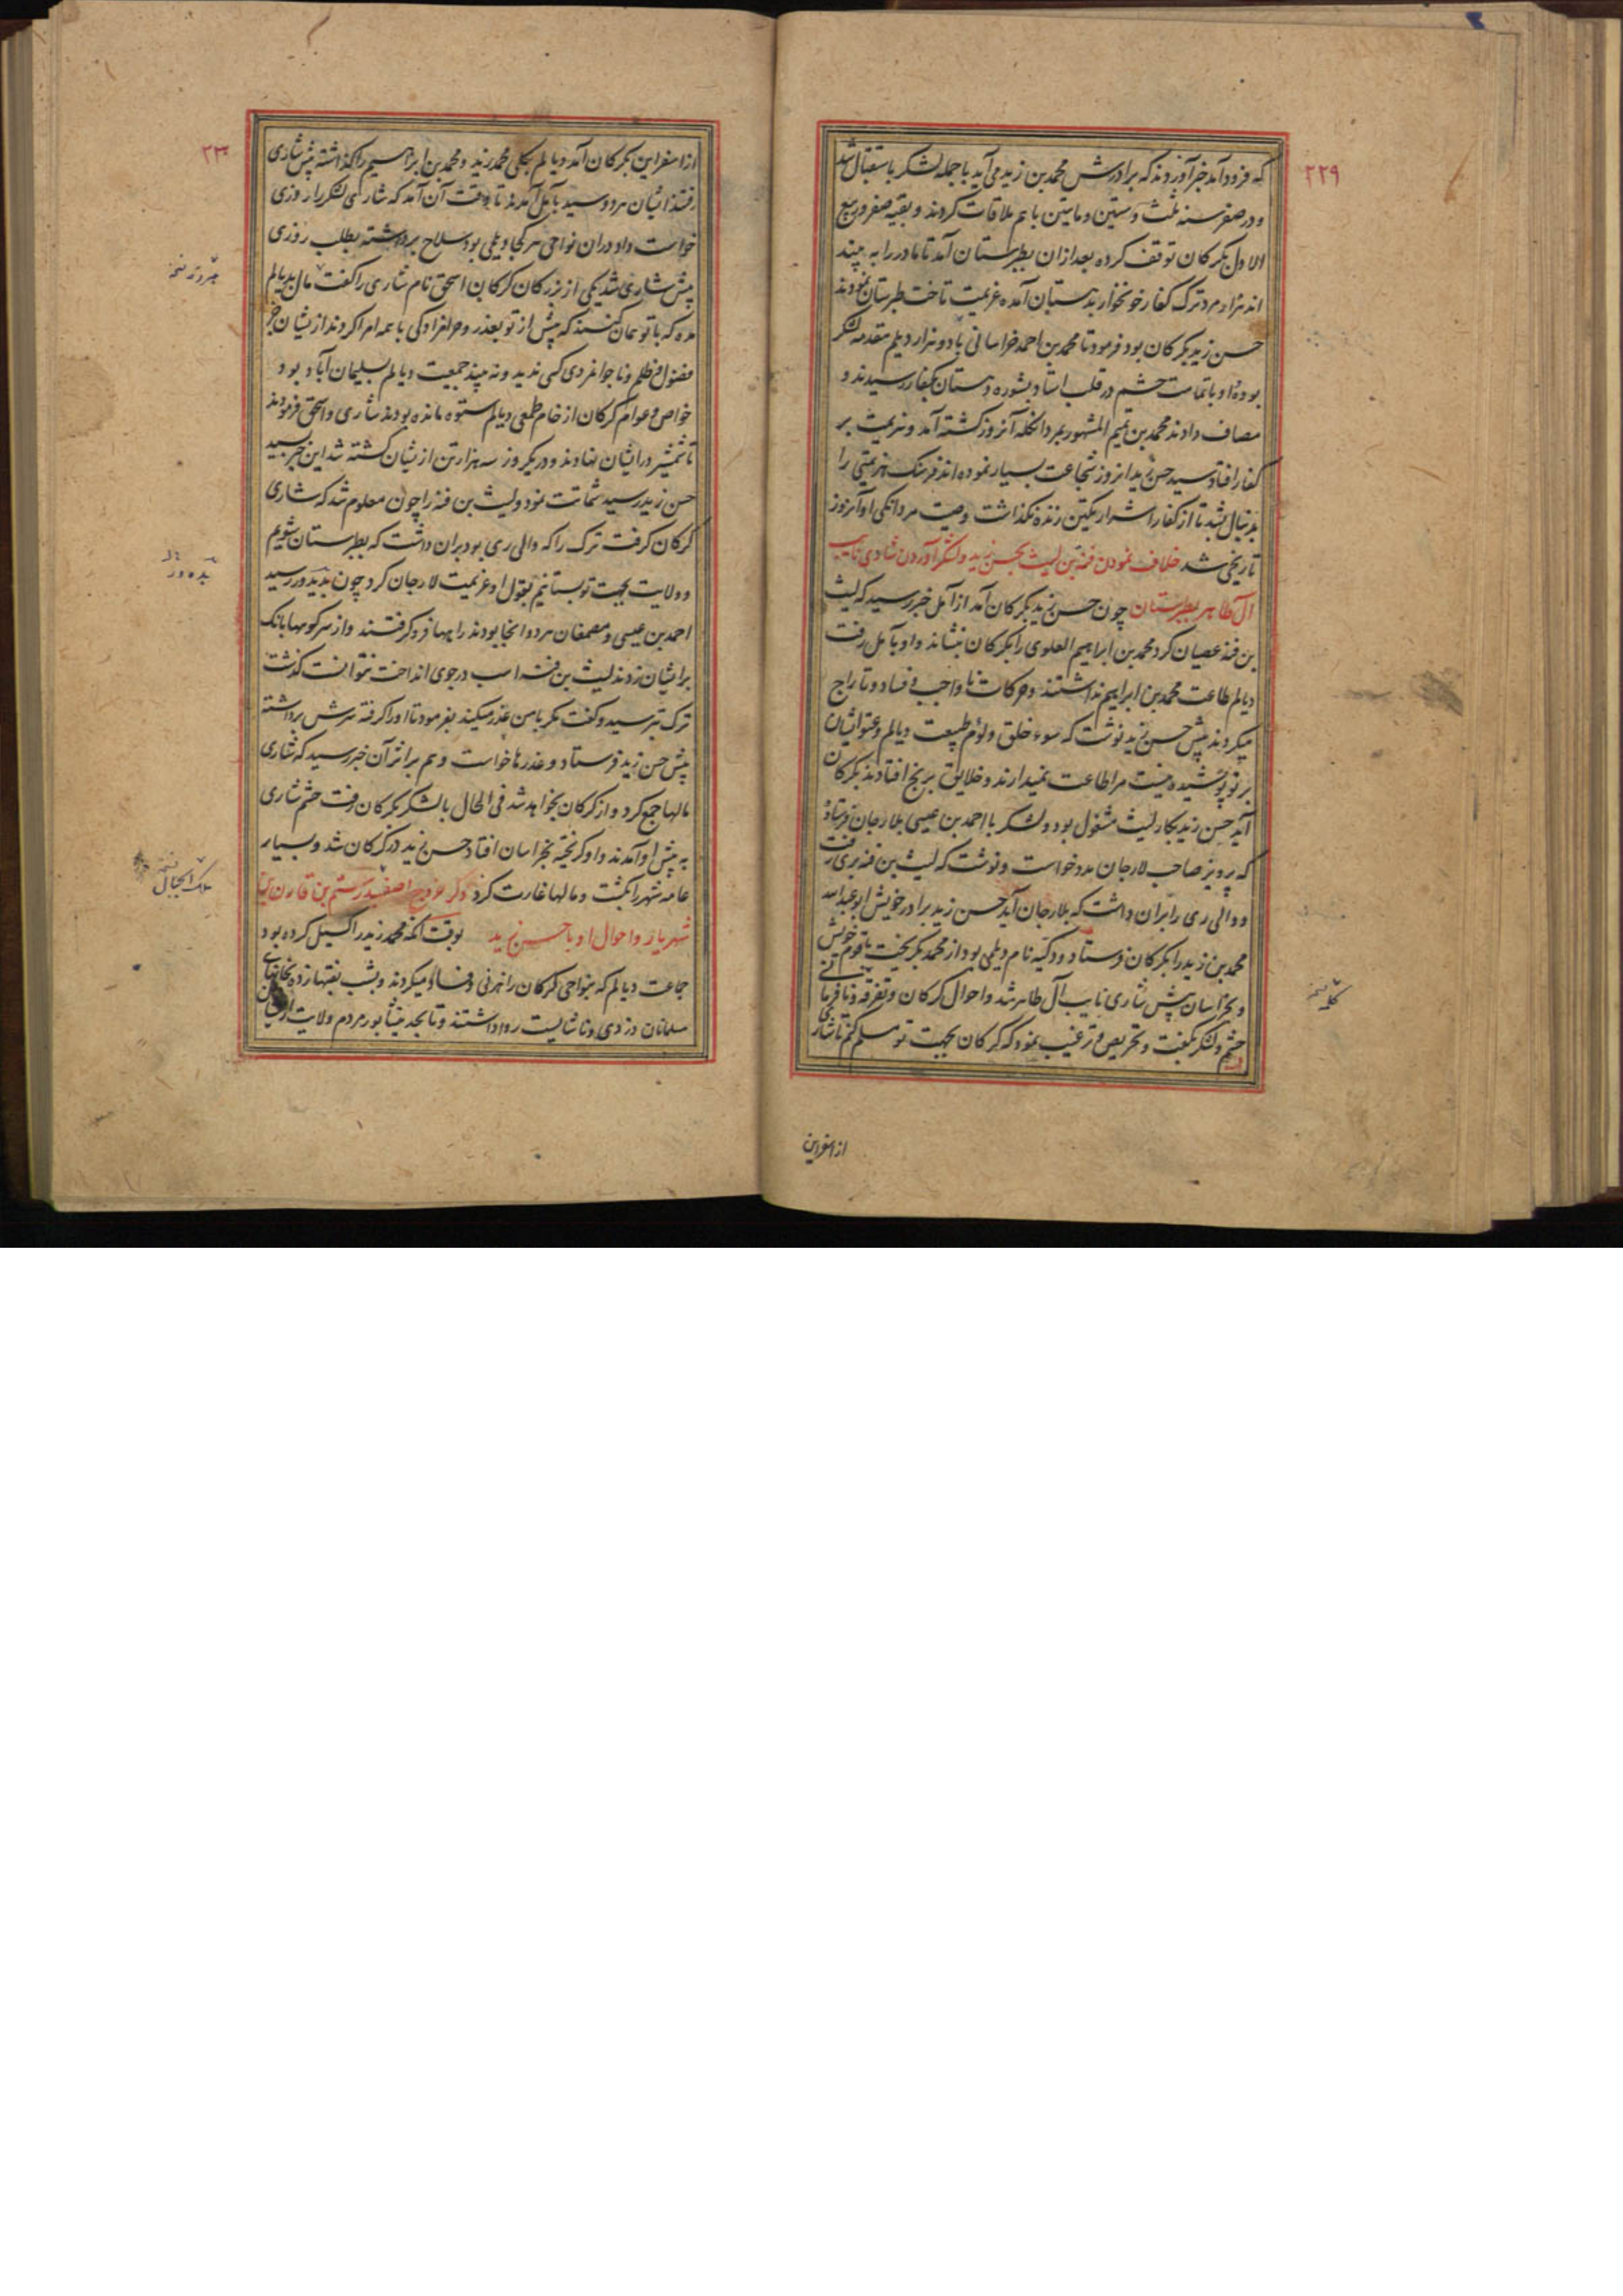 ۲۲۹
که فرود آمد خبر آوردند که برادرش محمد بن زید می آید با جمله لشکر باستقبال شد
و در صفر سنه ثلث و ستین و مایتین با هم ملاقات کردند و بقیه صفر و ربیع
الاول بکرکان توقف کرده بعد از ان بطبرستان آمد تا مادر را به بیند
اند هزار مرد ترک کفار خونخوار بدهستان آمده عزیمت تاخت طبرستان نمودند
حسن زید بکرکان بود فرمود تا محمد بن احمد خراسانی با دو هزار دیلم مقدمه لشکر
بوده او با تمامت حشم در قلب استاد بشوره دهستان بکفار رسیدند و
مصاف دادند محمد بن تمیم المشهور بمردانکله آنروز کشته آمد و هزیمت بر
کفار افتاد سید حسن زید انروز شجاعت بسیار نموده اند فرسنک هزیمتی را
بدنبال بشد تا از کفار اشرار یکتن زنده نکذاشت وصیت مردانکی او آنروز
تاریخی شد خلاف نمودن فنه بن لیث بحسن زید و لشکر آوردن شاری نایب
آل طاهر بطبرستان چون حسن زید بکرکان آمد از آمل خبر رسید که لیث
بن فنه عصیان کرد محمد بن ابراهیم العلوی را بکرکان بنشاند و او بآمل رفت
دیالم طاعت محمد بن ابراهیم نداشتند و حرکات نا واجب و فساد و تاراج
میکردند پیش حسن زید نوشت که سوء خلق و لؤم طبیعت دیالم و عتو ایشان
بر تو پوشیده نیست مرا طاعت نمیدارند و خلایق برنج افتادند بکرکان
آید حسن زید بکار لیث مشغول بود و لشکر با احمد بن عیسی بلارجان فرستاد
که پرویز صاحب لارجان مدد خواست و نوشت که لیث بن فنه بری رفت
و والی ری را بران داشت که بلارجان آید حسن زید برادر خویش ابو عبدالله
محمد بن زید را بکرکان فرستاد و دکیه نام دیلمی بود از محمد بکریخت با قوم خویش
و بخراسان پیش شاری نایب آل طاهر شد و احوال کرکان و تفرقه و نافرمانی
حشم و لشکر بکفت و تحریص و ترغیب نمود که کرکان بجهت تو مسلم کنم تا شاری
از اسفراین
۲۳۰
از اسفراین بکرکان آمد و دیالم بکلی محمد زید و محمد بن ابراهیم را کذاشته پیش شاری
رفتند ایشان هر دو سید بآمل آمدند تا وقت آن آمد که شاری لشکر را روزی
خواست داد در ان نواحی هر کجا دیلمی بود سلاح برداشته بطلب روزی
پیش شاری شد یکی از بزرکان کرکان اسحق نام شاری را کفت مال بدیالم
مده که با تو همان کنند که پیش از تو بغدر و حرامزادکی با همه امرا کردند از ایشان جز
فضول و ظلم و ناجوانمردی کسی ندید و نه بیند جمعیت دیالم بسلیمان آباد بود
خواص و عوام کرکان از خام طمعی دیالم ستوه مانده بودند شاری و اسحق فرمودند
تا شمشیر در ایشان نهادند و در یکروز سه هزار تن از ایشان کشته شد این خبر بسید
حسن زید رسید شماتت نمود و لیث بن فنه را چون معلوم شد که شاری
کرکان کرفت ترک را که والی ری بود بران داشت که بطبرستان شویم
و ولایت بجهت تو بستانیم بقول او عزیمت لارجان کرد چون بدیدور رسید
احمد بن عیسی و مصمغان هر دو انجا بودند راهها فرو کرفتند و از سر کوهها بانک
برایشان زدند لیث بن فنه اسب در جوی انداخت نتوانست کذشت
ترک بترسید و کفت مکر با من غدر میکنند بفرمود تا او را کرفته سرش برداشته
پیش حسن زید فرستاد و عذرها خواست و هم بر اثر آن خبر رسید که شاری
مالها جمع کرد و از کرکان بخواهد شد فی الحال با لشکر بکرکان رفت حشم شاری
به پیش او آمدند و او کریخته بخراسان افتاد حسن زید در کرکان شد و بسیار
عامه شهر را بکشت و مالها غارت کرد ذکر خروج اصفهبد رستم بن قارن بن
شهریار و احوال او با حسن زید بوقت آنکه محمد زید را کسیل کرده بود
جماعت دیالم که بنواحی کرکان راهزنی و فساد میکردند و بشب نقبها زده بخانهای
مسلمانان دزدی و ناشایست روا داشتند و تا بحد نیشابور مردم ولایت
ملک الجبال نسخه